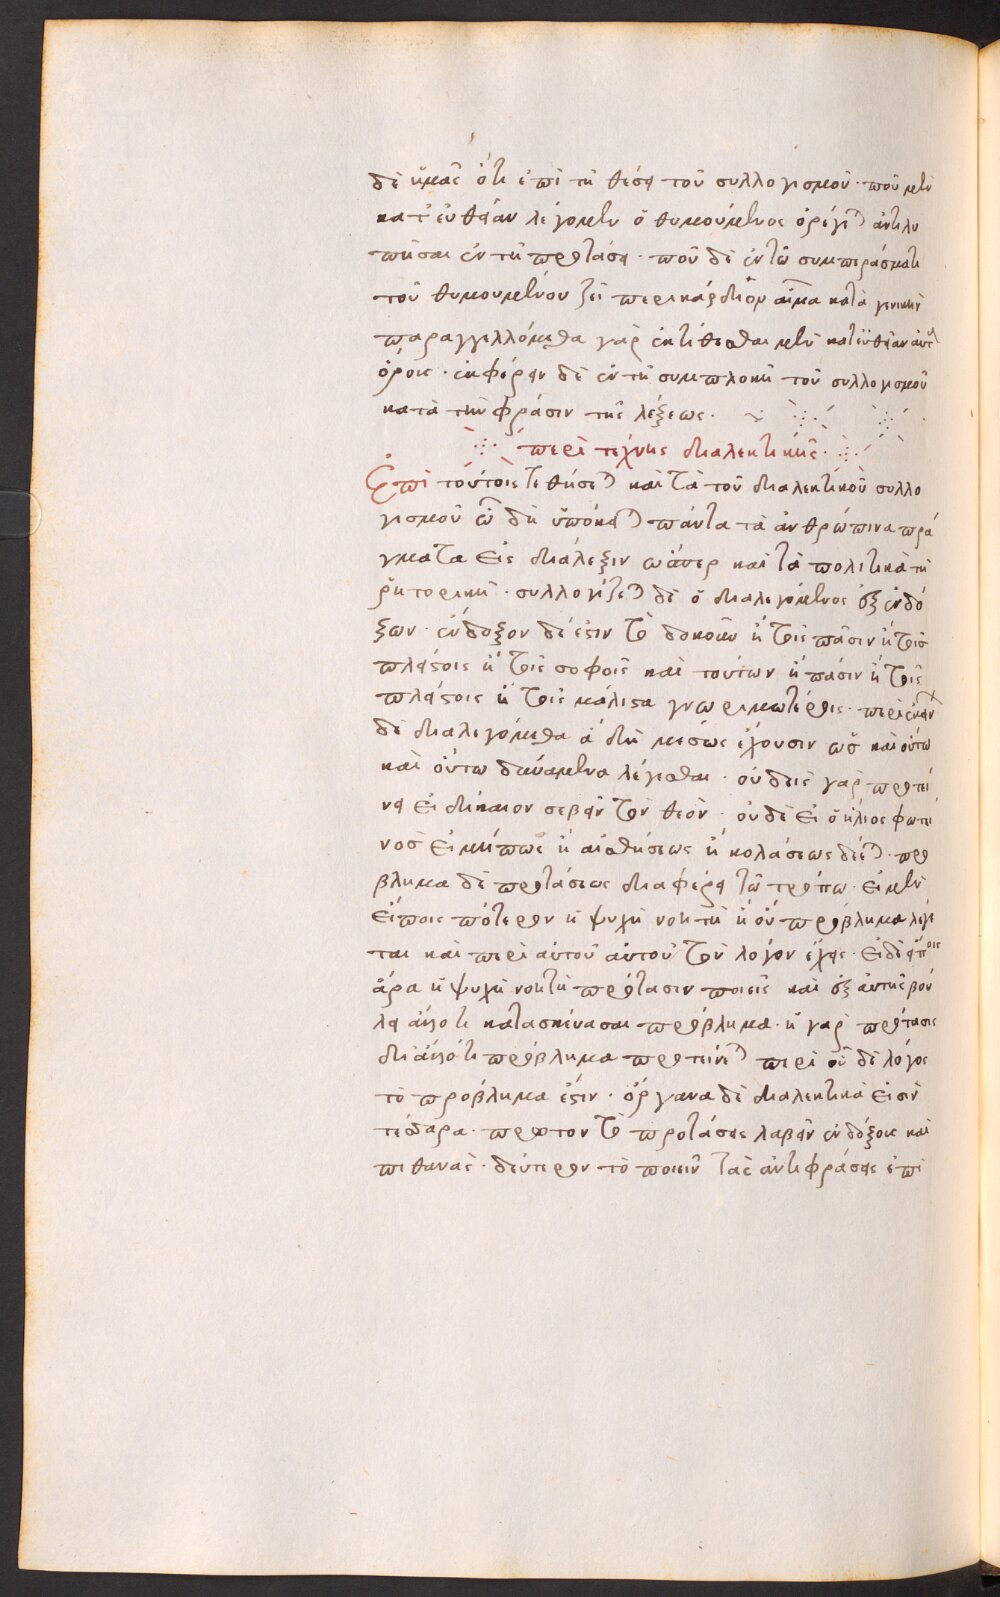 δὲ ἡμᾶς ὅτι ἐπὶ τῇ θέσει τοῦ συλλογισμοῦ· ποῦ μὲν
κατ' εὐθεῖαν λέγομεν ὁ θυμούμενος ὀρέγεται ἀντιλυ
πῆσαι ἐν τῇ προτάσει· ποῦ δὲ ἐν τῷ συμπεράσματι
τοῦ θυμουμένου ζεῖ περικάρδιον αἷμα κατὰ γενικήν
παραγγελλόμεθα γὰρ ἐκτίθεσθαι μὲν κατ' εὐθεῖαν αὐτοὺς
ὅρους· ἐκφέρειν δὲ ἐν τῇ συμπλοκῇ τοῦ συλλογισμοῦ
κατὰ τὴν φράσιν τῆς λέξεως·
περὶ τέχνης διαλεκτικῆς·
Ἐπὶ τούτοις τεθήσεται καὶ τὰ τοῦ διαλεκτικοῦ συλλο
γισμοῦ ᾧ δὴ ὑπόκειται πάντα τὰ ἀνθρώπινα πρά
γματα εἰς διάλεξιν ὥσπερ καὶ τὰ πολιτικὰ τῇ
ῥητορικῇ· συλλογίζεται δὲ ὁ διαλεγόμενος ἐξ ἐνδό
ξων· ἔνδοξον δέ ἐστιν τὸ δοκοῦν ἢ τοῖς πᾶσιν ἢ τοῖς
πλείστοις ἢ τοῖς σοφοῖς καὶ τούτων ἢ πάσιν ἢ τοῖς
πλείστοις ἢ τοῖς μάλιστα γνωριμωτέροις· περὶ ἐκείνων
δὲ διαλεγόμεθα ἃ δὴ μέσως ἔχουσιν ὡς καὶ οὕτω
καὶ οὕτω δυνάμενα λέγεσθαι· οὐδεὶς γὰρ προτεί
νει εἰ δίκαιον σέβειν τὸν θεόν· οὐδὲ εἰ ὁ ἥλιος φωτει
νός εἰ μήπως ἢ αἰσθήσεως ἢ κολάσεως δέεται· πρό
βλημα δὲ προτάσεως διαφέρει τῷ τρόπῳ· εἰ μὲν
εἴποις πότερον ἡ ψυχὴ νοητὴ ἢ οὒ πρόβλημα λέγε
ται καὶ περὶ αὐτοῦ αὐτοῦ τὸν λόγον ἔχεις· εἰ δὲ εἴποις
ἆρα ἡ ψυχὴ νοητὴ πρότασιν ποιεῖς καὶ ἐξ αὐτῆς βού
λει ἄλλο τι κατασκευάσαι πρόβλημα· ἡ γὰρ πρότασις
δι' ἄλλό τι πρόβλημα προτείνεται περὶ οὗ δὲ λόγος
τὸ πρόβλημα ἐστιν· ὄργανα δὲ διαλεκτικὰ εἰσὶν
τέσσαρα· πρῶτον τὸ προτάσεις λαβεῖν ἐνδόξους καὶ
πιθανάς· δεύτερον τὸ ποιεῖν τὰς ἀντιφράσεις ἐπὶ